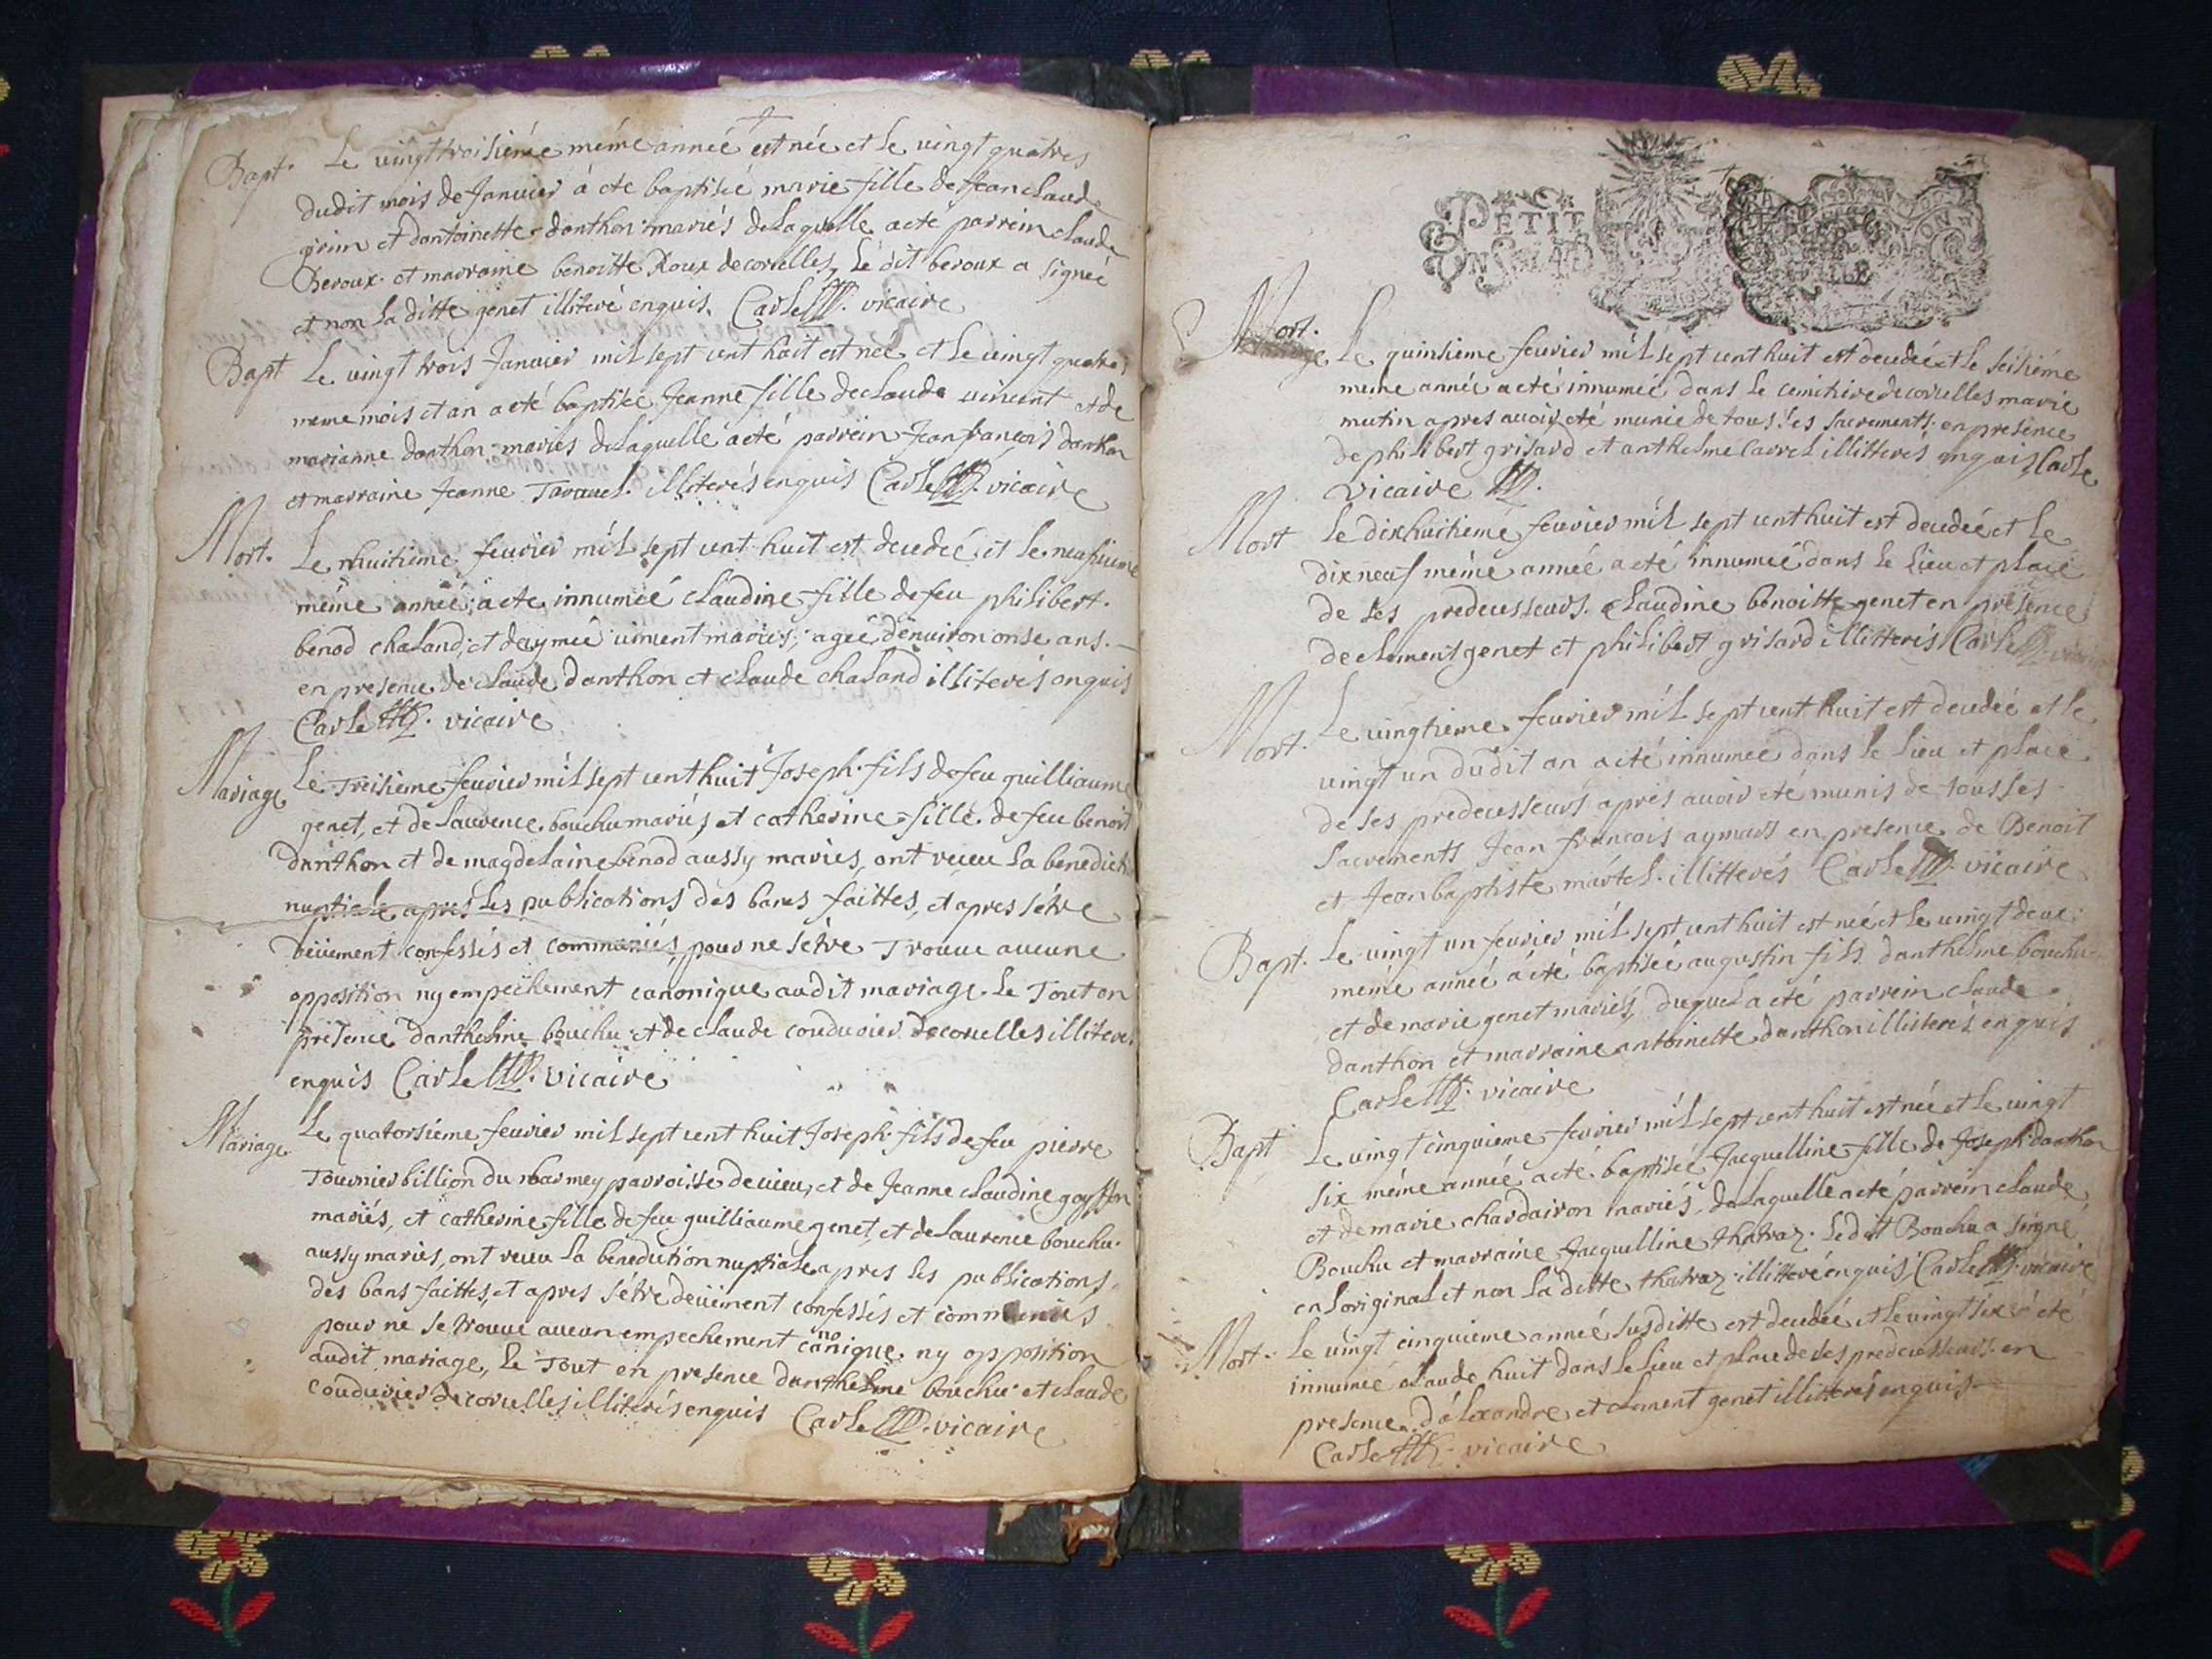 Bapt. Le vingt troisiéme méme anneé est née et le vingt quatres
dudit mois de Janvier à été baptiseé marie fille de Jean claude
grim et dantoinette danthon mariés de laquelle acté parrein claude
Beroux et marraine benoitte Roux decorcelles, le dit beroux a signeé
et non la ditte genet illiteré enquis. Carle vicaire
Bapt Le vingt trois Janvier mil sept cent huit est neé et le vingt quatre
meme mois et an acté baptiseé Jeanne fille de claude vincent et de
marianne danthon mariés de laquelle acté parrein Jean françois danthon
et marraine Jeanne Tavauel. illiterés enquis Carle vicaire
Mort. Le huitieme feuvier mil sept cent huit est decedeé et le neufvieme
méme anneé acte innumeé claudine fille de feu philibert
benod chaland, et daymeé vincent mariés, ageé denuiron onse ans.
en presence de claude danthon et claude chaland illiterés enquis
Carle vicaire
Mariage Le Treisieme feuvier mil sept cent huit Joseph fils de feu guilliaume
genet, et de laurence bouchu mariés, et catherine fille de feu benoit
danthon et de magdelaine benod aussy mariés, ont receu la benedict
nuptiale aprés les publications des bans faittes, et apres sétre
deüement confessés et communiés, pour ne sétre Trouué aucune
opposition ny empechement canonique audit mariage. Le Tout en
présence danthelme bouchu et de claude couduvier de corcelles illiterés
enquis Carle vicaire
Mariage Le quatorsieme feuvier mil sept cent huit Joseph fils de feu pierre
Tournier billion du marmey parroisse de uieu, et de Jeanne claudine goyffon
mariés, et catherine fille de feu guilliaume genet, et de laurence bouchu
aussy mariés, ont receu la benediction nuptiale apres les publications
des bans faittes, et apres sétre deüement confessés et communiés
pour ne se trouué aucun empechement canonique ny opposition
audit mariage, le Tout en presence danthelme bouchu et claude
couduvier de corcelles illiterés enquis Carle vicaire
PETIT
Mort. Le quinsieme feuvier mil sept cent huit est decedeé et le séisiéme
meme anneé acté innumeé dans le cemitiere de corcelles marie
mutin apres avoir eté munie de tous ses sacrements en presence
de philibert grisard et anthelme Carrel illitterés enquis, Carle
Vicaire
Mort Le dixhuitieme feuvier mil sept cent huit est decedeé et le
dix neuf méme année a eté innumeé dans le lieu et place
de ses predecesseurs. claudine benoitte genet en présence
de clement genet et philibert grisard illitterés Carle vicaire
Mort. Le vingtieme feuvier mil sept cent huit est decedeé et le
vingt un dudit an acté innumeé dans le lieu et place
de ses predecesseurs aprés avoir eté munis de tous ses
sacrements Jean francois aymard en presence de Benoit
et Jean baptiste martel. illitterés Carle vicaire
Bapt. Le vingt un feuvier mil sept cent huit est neé et le vingt deux
méme anneé à eté baptiseé augustin fils danthelme bouchu
et de marie genet mariés, duquel a eté parrein claude
danthon et marraine antoinette danthon illiterés enquis
Carle vicaire
Bapt Le vingt cinquieme feuvier mil sept cent huit est neé et le vingt
six méme anneé acté baptiseé Jacquelline fille de Joseph danthon
et de marie chardairon mariés, de laquelle acté parrein claude
Bouchu et marraine Jacquelline thatraz. Ledit Bouchu a signé
en loriginal et non la ditte thatraz illitteré enquis, Carle vicaire
Mort. Le vingt cinquieme anneé susditte est decedeé et le vingt six à eté
innumeé claude huit dans le lieu et place de ses predecesseurs en
presence dálexandre et clement genet illitterés enquis.
Carle vicaire